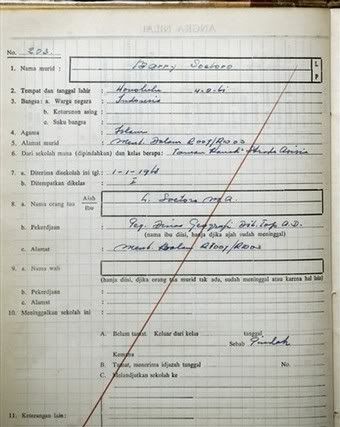 ANGKA NILAI
No. 203.
1. Nama murid : Barry Soetoro L P
2. Tempat dan tanggal lahir : Honolulu 4-8-61
3. Bangsa : a. Warga negara : Indonesia
b. Keturunan asing :
c. Suku bangsa :
4. Agama : Islam
5. Alamat murid : Ment. Dalam R007/R003
6. Dari sekolah mana (dipindahkan) dan kelas berapa : Taman Kanak² Strada Asisia
7. a. Diterima disekolah ini tgl. : 1-1-1968
b. Ditempatkan dikelas : I
8. a. Nama orang tua Ajah Ibu : L. Soetoro M.A.
b. Pekerdjaan : Peg. Dinas Geografi Dit. Top. A.D.
(nama ibu diisi, hanja djika ajah sudah meninggal)
c. Alamat : Ment. Dalam R007/R003
9. a. Nama wali :
(hanja diisi, djika orang tua murid tak ada, sudah meninggal atau karena hal lain)
b. Pekerdjaan :
c. Alamat :
10. Meninggalkan sekolah ini :
A. Belum tamat. Keluar dari kelas tanggal
Sebab Pindah
Kemana
B. Tamat, menerima idjazah tanggal No.
C. Melandjutkan sekolah ke
11. Keterangan lain :